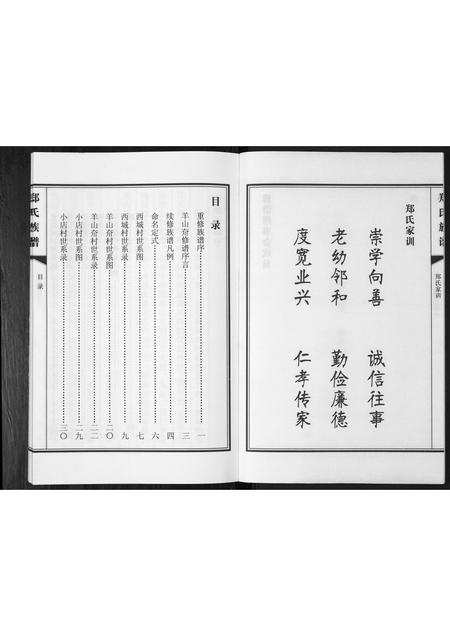 郑氏族谱
郑氏家训
郑氏家训
崇学向善 诚信往事
老幼邻和 勤俭廉德
度宽业兴 仁孝传家
目录
重修族谱序 一
羊山夼修谱序言 三
续修族谱凡例 四
命名定式 六
西城村世系图 七
西城村世系录 九
羊山夼村世系图 二〇
羊山夼村世系录 二二
小店村世系图 二九
小店村世系录 三〇
郑氏族谱
目录